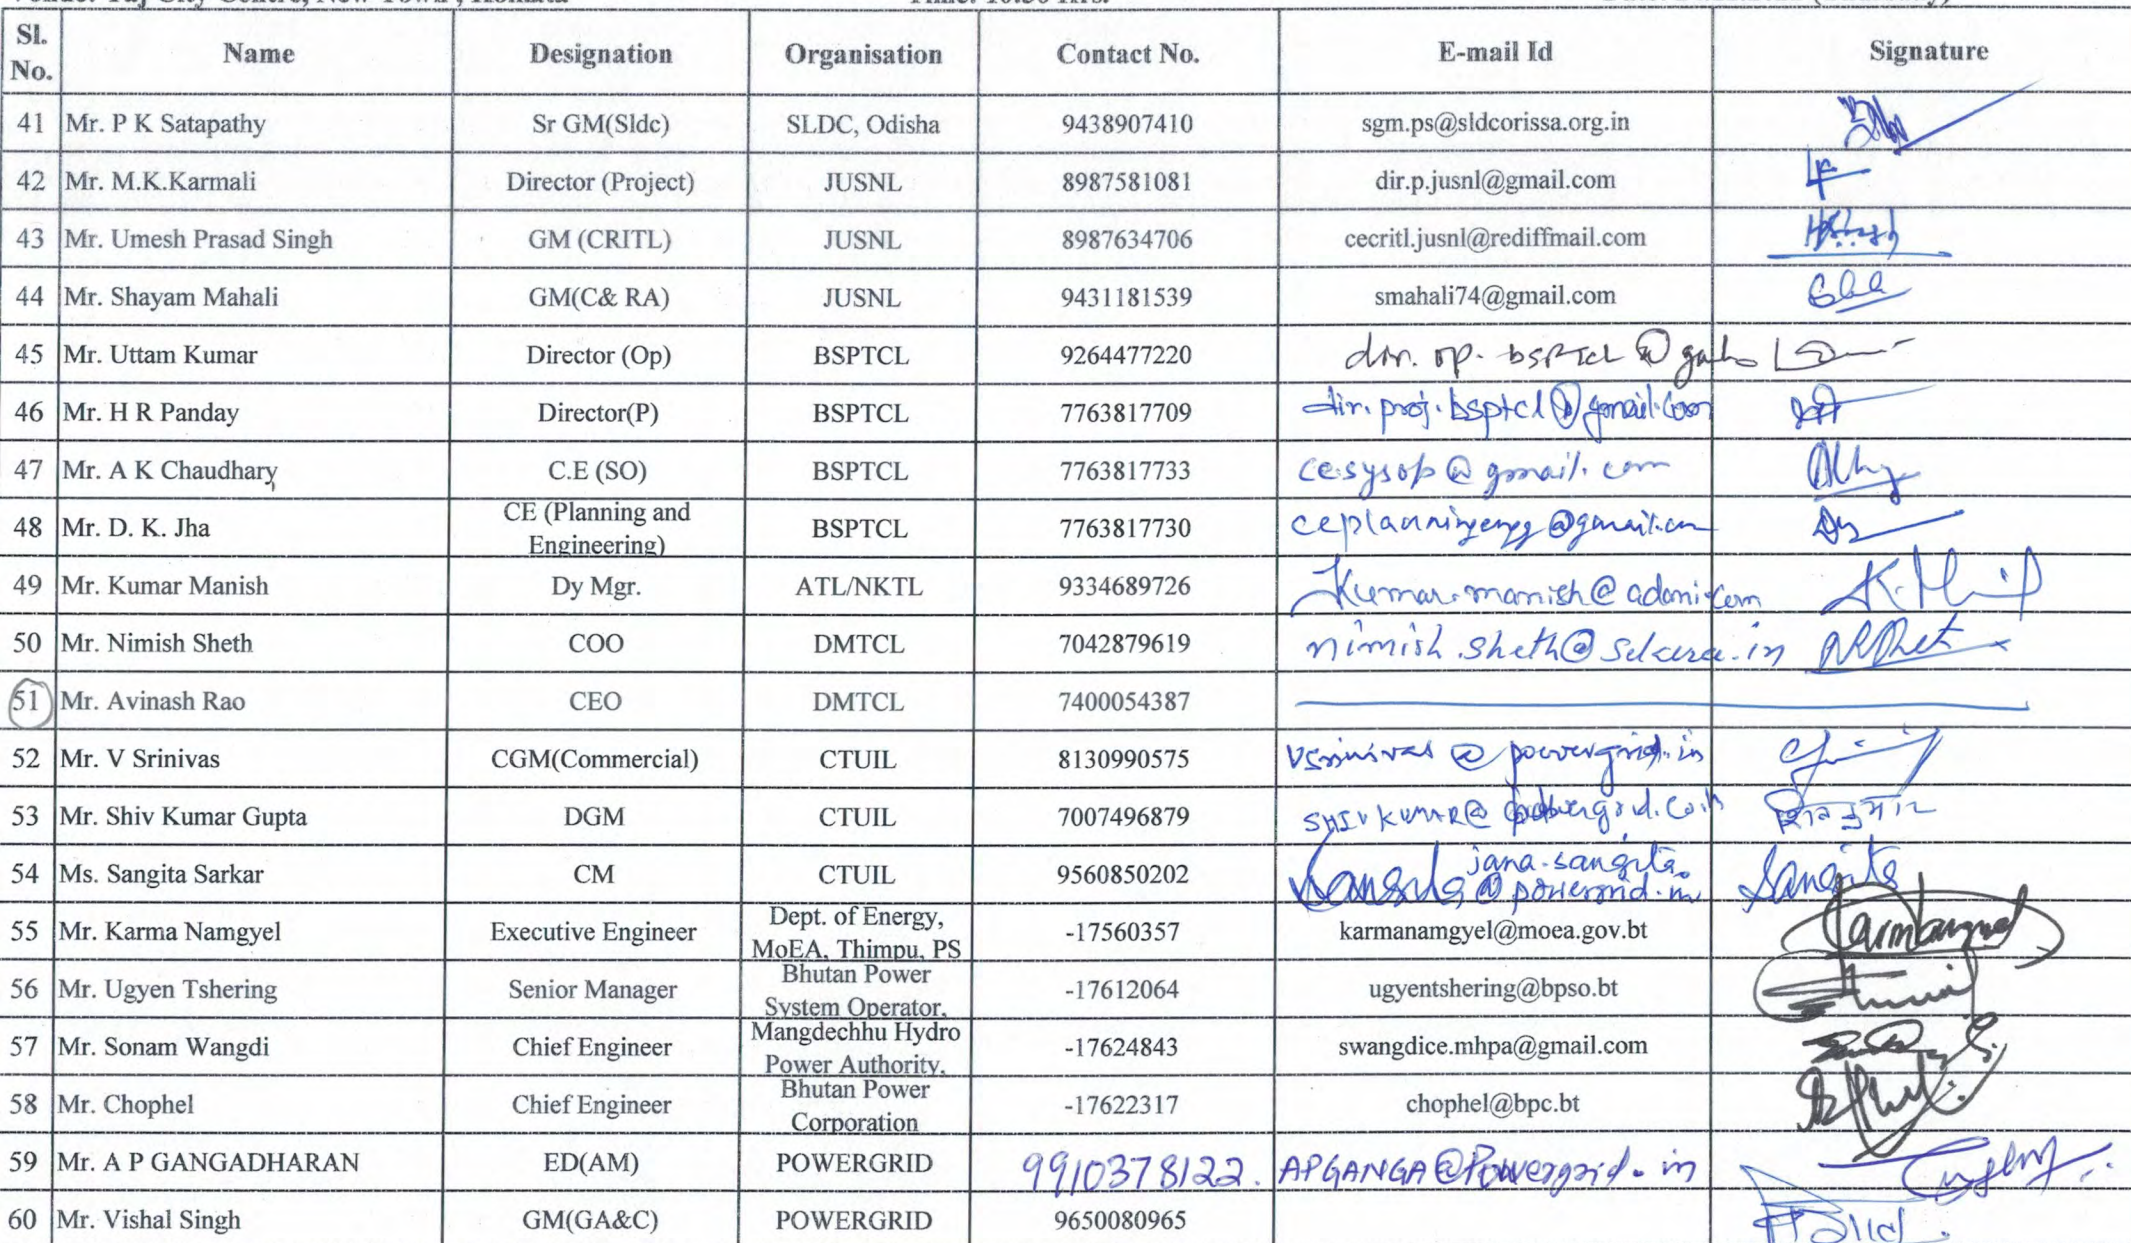 Sl. No. Name Designation Organisation Contact No. E-mail Id Signature
41 Mr. P K Satapathy Sr GM(Sldc) SLDC, Odisha 9438907410 sgm.ps@sldcorissa.org.in
42 Mr. M.K.Karmali Director (Project) JUSNL 8987581081 dir.p.jusnl@gmail.com
43 Mr. Umesh Prasad Singh GM (CRITL) JUSNL 8987634706 cecritl.jusnl@rediffmail.com
44 Mr. Shayam Mahali GM(C& RA) JUSNL 9431181539 smahali74@gmail.com
45 Mr. Uttam Kumar Director (Op) BSPTCL 9264477220
46 Mr. H R Panday Director(P) BSPTCL 7763817709 dir.proj.bsptcl@gmail.com
47 Mr. A K Chaudhary C.E (SO) BSPTCL 7763817733 cesysop@gmail.com
48 Mr. D. K. Jha CE (Planning and Engineering) BSPTCL 7763817730
49 Mr. Kumar Manish Dy Mgr. ATL/NKTL 9334689726 Kumar.manish@adani.com
50 Mr. Nimish Sheth COO DMTCL 7042879619
51 Mr. Avinash Rao CEO DMTCL 7400054387
52 Mr. V Srinivas CGM(Commercial) CTUIL 8130990575 vsrinivas@powergrid.in
53 Mr. Shiv Kumar Gupta DGM CTUIL 7007496879
54 Ms. Sangita Sarkar CM CTUIL 9560850202 jana.sangita @powergrid.in Sangita
55 Mr. Karma Namgyel Executive Engineer Dept. of Energy, MoEA, Thimpu, PS -17560357 karmanamgyel@moea.gov.bt
56 Mr. Ugyen Tshering Senior Manager Bhutan Power System Operator, -17612064 ugyentshering@bpso.bt
57 Mr. Sonam Wangdi Chief Engineer Mangdechhu Hydro Power Authority, -17624843 swangdice.mhpa@gmail.com
58 Mr. Chophel Chief Engineer Bhutan Power Corporation -17622317 chophel@bpc.bt
59 Mr. A P GANGADHARAN ED(AM) POWERGRID 9910378122. APGANGA@Powergrid.in
60 Mr. Vishal Singh GM(GA&C) POWERGRID 9650080965